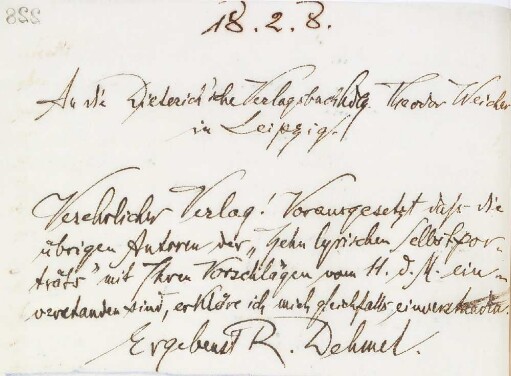 228
18. 2. 8.
An die Dieterich'sche Verlagsbuchhdg. Theodor Weicher
in Leipzig.
Verehrlicher Verlag! Vorausgesetzt daß die
übrigen Autoren der „Zehn lyrischen Selbstpor-
träts" mit Ihren Vorschlägen vom 11. d. M. ein-
verstanden sind, erkläre ich mich gleichfalls einverstanden.
Ergebenst R. Dehmel.